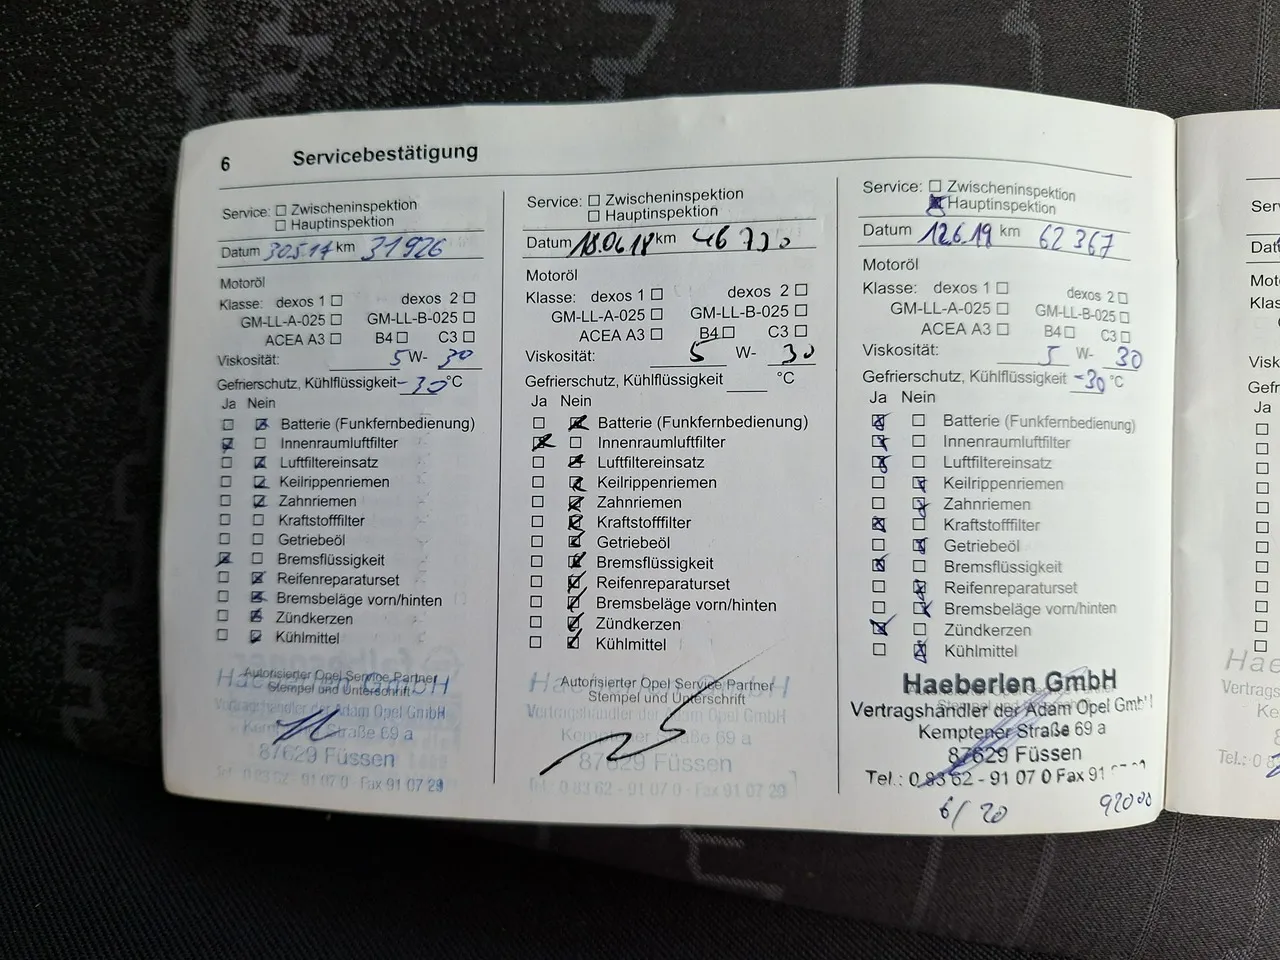 6 Servicebestätigung
Service: Zwischeninspektion
Hauptinspektion
Datum 30.5.17 km 31926
Motoröl
Klasse: dexos 1 dexos 2
GM-LL-A-025 GM-LL-B-025
ACEA A3 B4 C3
Viskosität: 5 W- 30
Gefrierschutz, Kühlflüssigkeit -30 °C
Ja Nein
Batterie (Funkfernbedienung)
Innenraumluftfilter
Luftfiltereinsatz
Keilrippenriemen
Zahnriemen
Kraftstofffilter
Getriebeöl
Bremsflüssigkeit
Reifenreparaturset
Bremsbeläge vorn/hinten
Zündkerzen
Kühlmittel
Autorisierter Opel Service Partner
Stempel und Unterschrift
Haeberlen GmbH
Vertragshändler der Adam Opel GmbH
Kemptener Straße 69 a
87629 Füssen
Tel.: 0 83 62 - 91 07 0 - Fax 91 07 29
Service: Zwischeninspektion
Hauptinspektion
Datum 18.06.18 km
Motoröl
Klasse: dexos 1 dexos 2
GM-LL-A-025 GM-LL-B-025
ACEA A3 B4 C3
Viskosität: 5 W- 30
Gefrierschutz, Kühlflüssigkeit °C
Ja Nein
Batterie (Funkfernbedienung)
Innenraumluftfilter
Luftfiltereinsatz
Keilrippenriemen
Zahnriemen
Kraftstofffilter
Getriebeöl
Bremsflüssigkeit
Reifenreparaturset
Bremsbeläge vorn/hinten
Zündkerzen
Kühlmittel
Autorisierter Opel Service Partner
Stempel und Unterschrift
Haeberlen GmbH
Vertragshändler der Adam Opel GmbH
Kemptener Straße 69 a
87629 Füssen
Tel.: 0 83 62 - 91 07 0 - Fax 91 07 29
Service: Zwischeninspektion
Hauptinspektion
Datum 12.6.19 km 62367
Motoröl
Klasse: dexos 1 dexos 2
GM-LL-A-025 GM-LL-B-025
ACEA A3 B4 C3
Viskosität: 5 W- 30
Gefrierschutz, Kühlflüssigkeit -30 °C
Ja Nein
Batterie (Funkfernbedienung)
Innenraumluftfilter
Luftfiltereinsatz
Keilrippenriemen
Zahnriemen
Kraftstofffilter
Getriebeöl
Bremsflüssigkeit
Reifenreparaturset
Bremsbeläge vorn/hinten
Zündkerzen
Kühlmittel
Haeberlen GmbH
Vertragshändler der Adam Opel GmbH
Kemptener Straße 69 a
87629 Füssen
Tel.: 0 83 62 - 91 07 0 Fax 91
6/20 92000